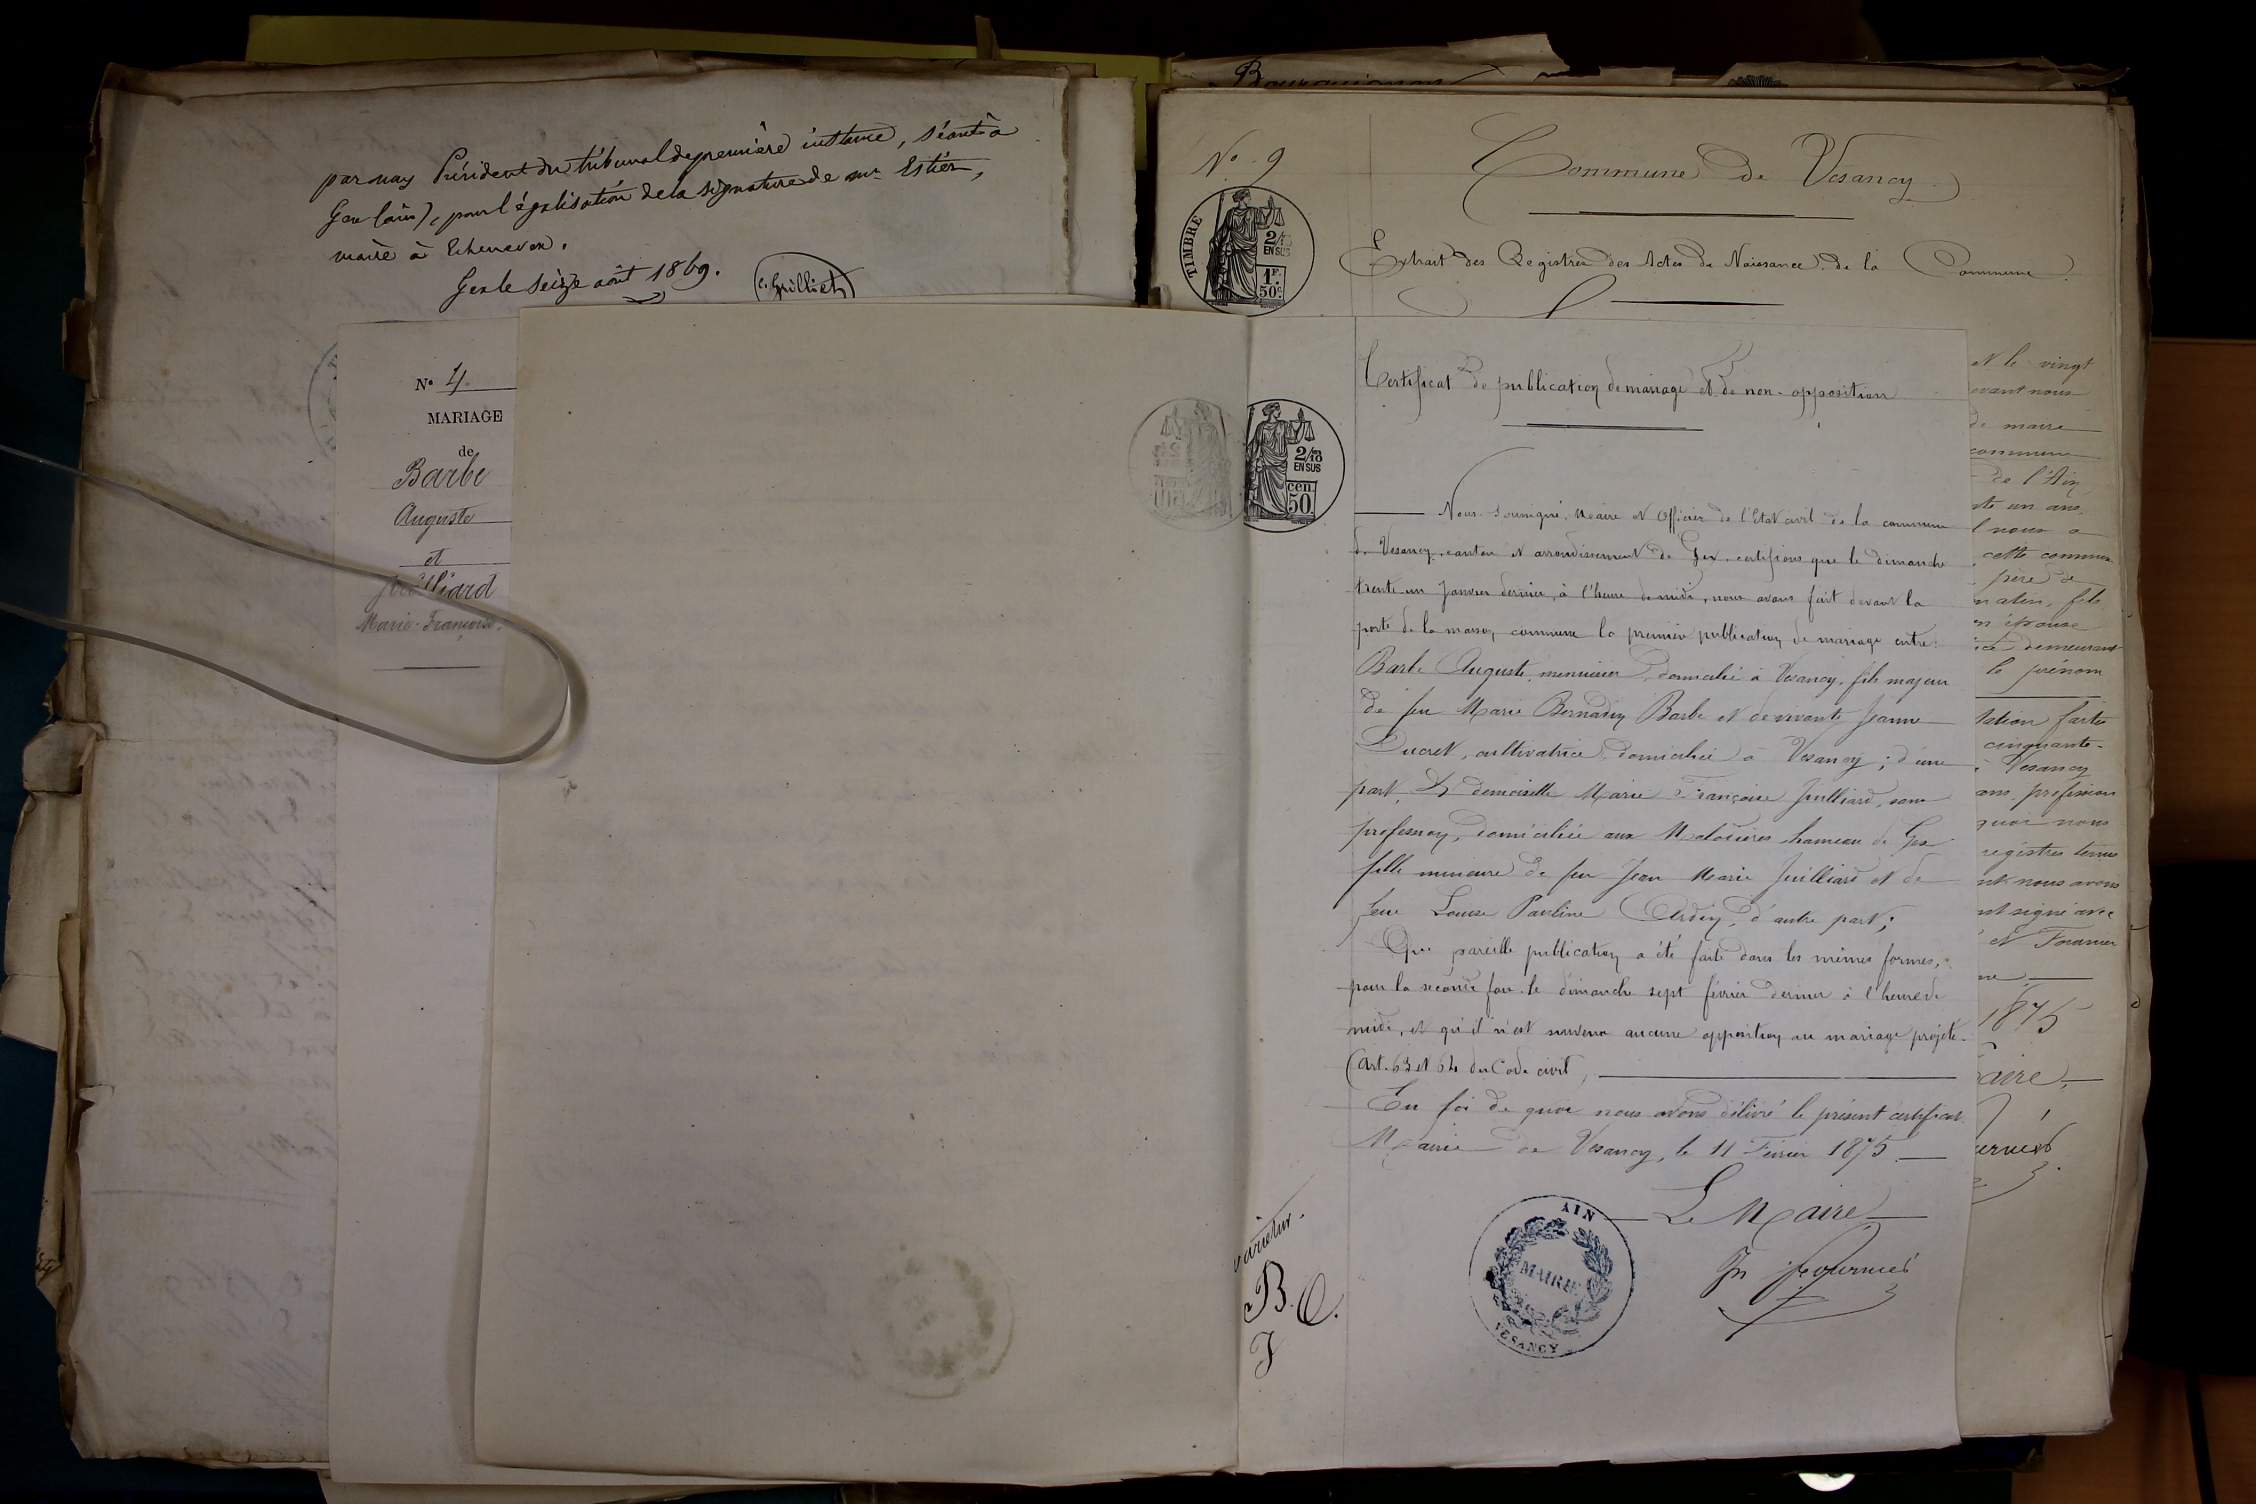 par nous Président du tribunal de première instance, séant à
Gex (ain), pour légalisation de la signature de mr Estier,
maire à Echenevex.
Gex le seize août 1869.
Bourguignon
N° 4
MARIAGE
de
Barbe
Auguste
et
Juilliard
Marie-Françoise.
N° 9
Commune de Vesancy
TIMBRE
2/10
EN SUS
1F.
50c.
Extrait des Registres des Actes de Naissance de la Commune
Certificat de publication de mariage et de non-opposition
2/10
EN SUS
cen.
50
Nous soussigné, Maire et Officier de l'Etat civil de la commune
de Vesancy, canton et arrondissement de Gex, certifions que le dimanche
trente un Janvier dernier, à l'heure de midi, nous avons fait devant la
porte de la maison commune la première publication de mariage entre:
Barbe Auguste, menuisier, domicilié à Vesancy, fils majeur
de feu Marie Bernadin Barbe et de vivante Jeanne
Ducret, cultivatrice domiciliée à Vesancy; d'une
part, Et demoiselle Marie Françoise Juilliard, sans
profession, domiciliée aux Maladières hameau de Gex
fille mineure de feu Jean Marie Juilliard et de
feue Louise Pauline, d'autre part;
Que pareille publication a été faite dans les mêmes formes,
pour la seconde fois le dimanche sept février dernier à l'heure de
midi, et qu'il n'est survenu aucune opposition au mariage projeté.
(Art. 63 et 64 du Code civil)
En foi de quoi nous avons délivré le présent certificat
Mairie de Vesancy, le 11 Février 1875
Le Maire
Fournier
AIN
MAIRIE
VESANCY
varietur.
B. O.
J
et le vingt
devant nous
de maire
commune
de l'Ain
un ans
nous a
cette commune
père de
matin, fils
épouse
demeurant
le prénom
tation faites
cinquante-
à Vesancy
ans, profession
quoi nous
registres tenus
nt nous avons
nt signé avec
et Fournier
1875
aire,